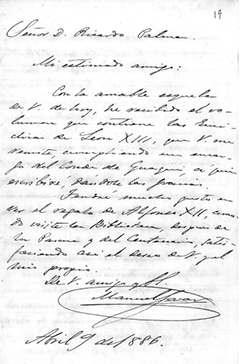 19
Señor D. Ricardo Palma
Mi estimado amigo:
Con la amable esquela
de V. de hoy, he recibido el vo-
lumen que contiene las Encí-
clicas de Leon XIII, que V. me
remite, cumpliendo un encar-
go del Conde de Guaqui, a quien
escribiré, dándole las gracias.
Tendré mucho gusto en
ver el regalo de Alfonso XII, cuando
visite la Biblioteca, despues de
la Pascua y del Centenario, satis-
faciendo así el deseo de V. y el
mio propio.
De V. amigo y
Manuel
Abril 9 de 1886.